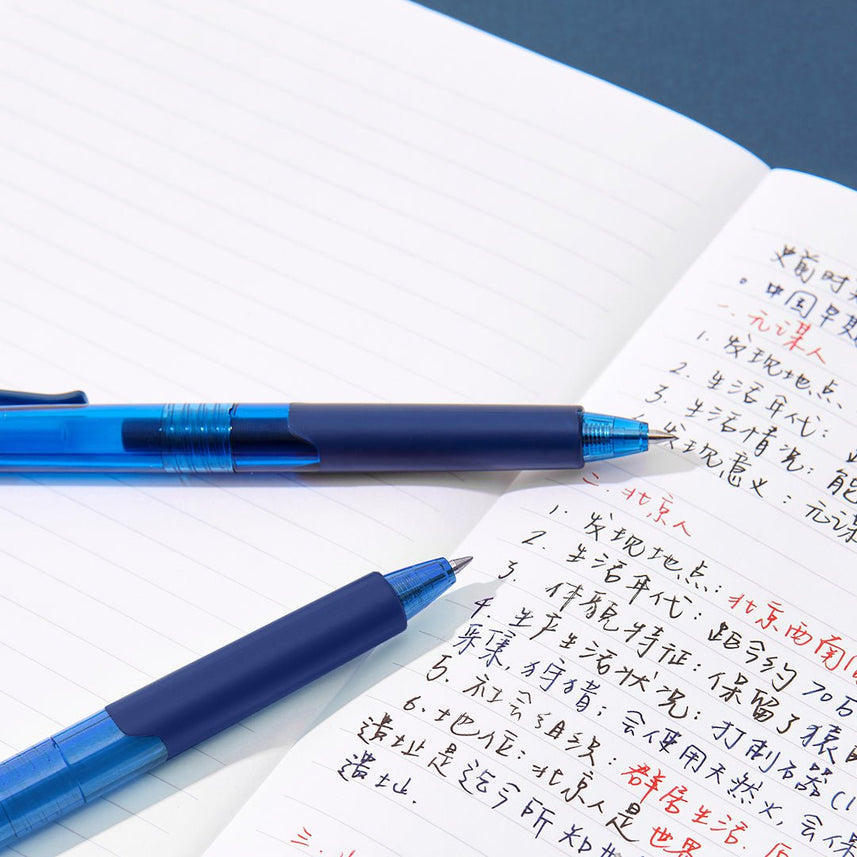 史前时
。中国早期
一、元谋人
1. 发现地点、
2. 生活年代：
3. 生活情况：能
发现意义：元谋
二、北京人
1. 发现地点：北京西南
2. 生活年代：距今约70万
3. 体貌特征：保留了猿
4. 生产生活状况：打制石器
采集，狩猎；会使用天然火，会保
5. 社会组织：群居生活.
6. 地位：北京人是世界
遗址是迄今所知
遗址.
三、